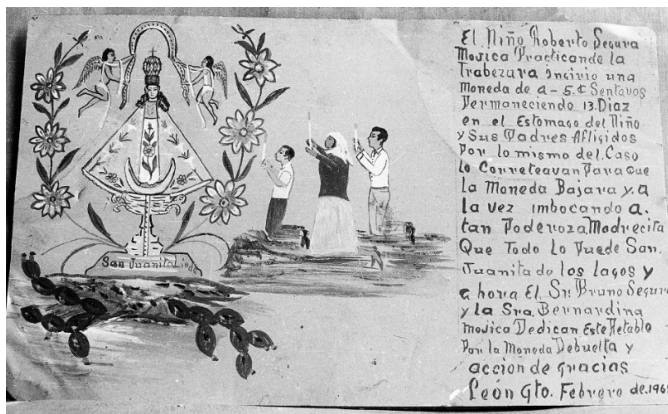 San Juanita Linda
El Niño Roberto Segura
Mojica Practicando la
Trabezura Incirio una
Moneda de a - 5¢ Sentavos
Permaneciendo 13. Diaz
en el Estomago del Niño
y Sus Padres Afligidos
Por lo mismo del Caso
lo Correteavan Para Que
la Moneda Bajara y a
la vez imbocando a.
tan Poderoza Madrecita
Que Todo lo Puede San.
Juanita de los lagos y
ahora El Sr. Bruno Segura
y la Sra. Bernardina
Mojica Dedican Este Retablo
Por la Moneda Debuelta y
accion de gracias
León Gto. Febrero de. 196